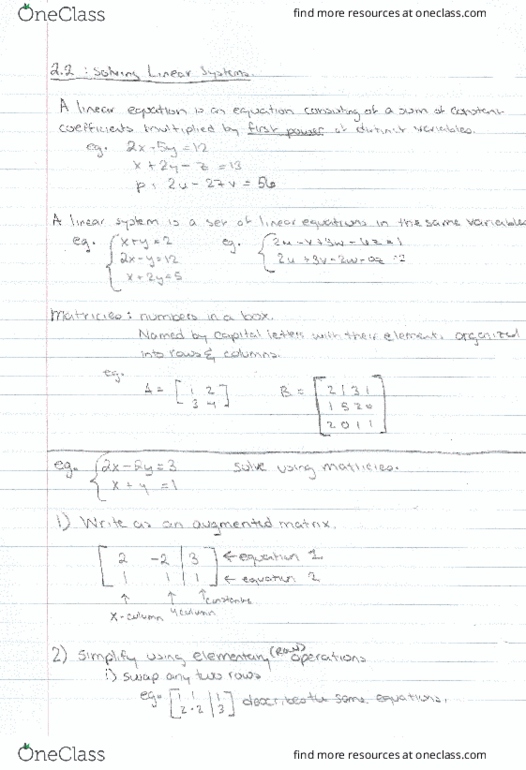 OneClass
find more resources at oneclass.com
2.2 : Solving Linear Systems.
A linear equation is an equation consisting of a sum of constant
coefficients multiplied by first power of distinct variables.
eg. 2x - 5y = 12
x + 2y - z = 13
2u - 27v = 56
A linear system is a set of linear equations in the same variables
eg. { x + y = 2 eg.
2x - y = 12
x + 2y = 5
Matricies : numbers in a box.
Named by capital letters with their element, organized
into rows & columns.
eg.
A = [ 1 2 B = [ 2 1 3 1
3 4 ] 1 5 2 0
2 0 1 1 ]
eg. { 2x - 2y = 3 solve using matricies.
x + y = 1
1) Write as an augmented matrix.
[ 2 -2 | 3 ] ← equation 1
1 1 | 1 ← equation 2
↑ ↑ ↑ constants
x-column y column
2) Simplify using elementary (row) operations
i) swap any two rows
eg. [ 1 1 | 1
2 -2 | 3 ] describes the same equations.
OneClass
find more resources at oneclass.com